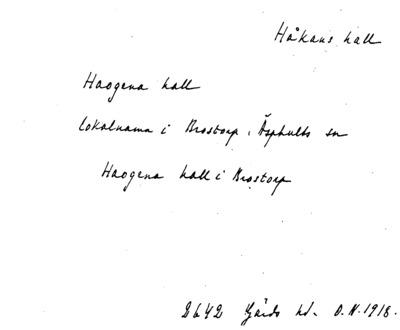 Håkans hall
Haogena hall
lokalnamn i Brostorp, Äsphults sn
Haogena hall i Brostorp
2642 Gärds hd. O.N. 1918.